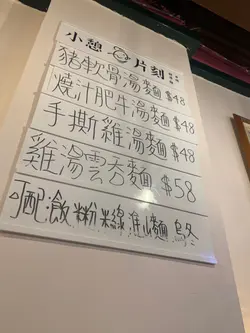 小憩片刻
豬軟骨湯麵 $48
燒汁肥牛湯麵 $48
手撕雞湯麵 $48
雞湯雲吞麵 $58
可配:飯 粉 米線 淮山麵 烏冬